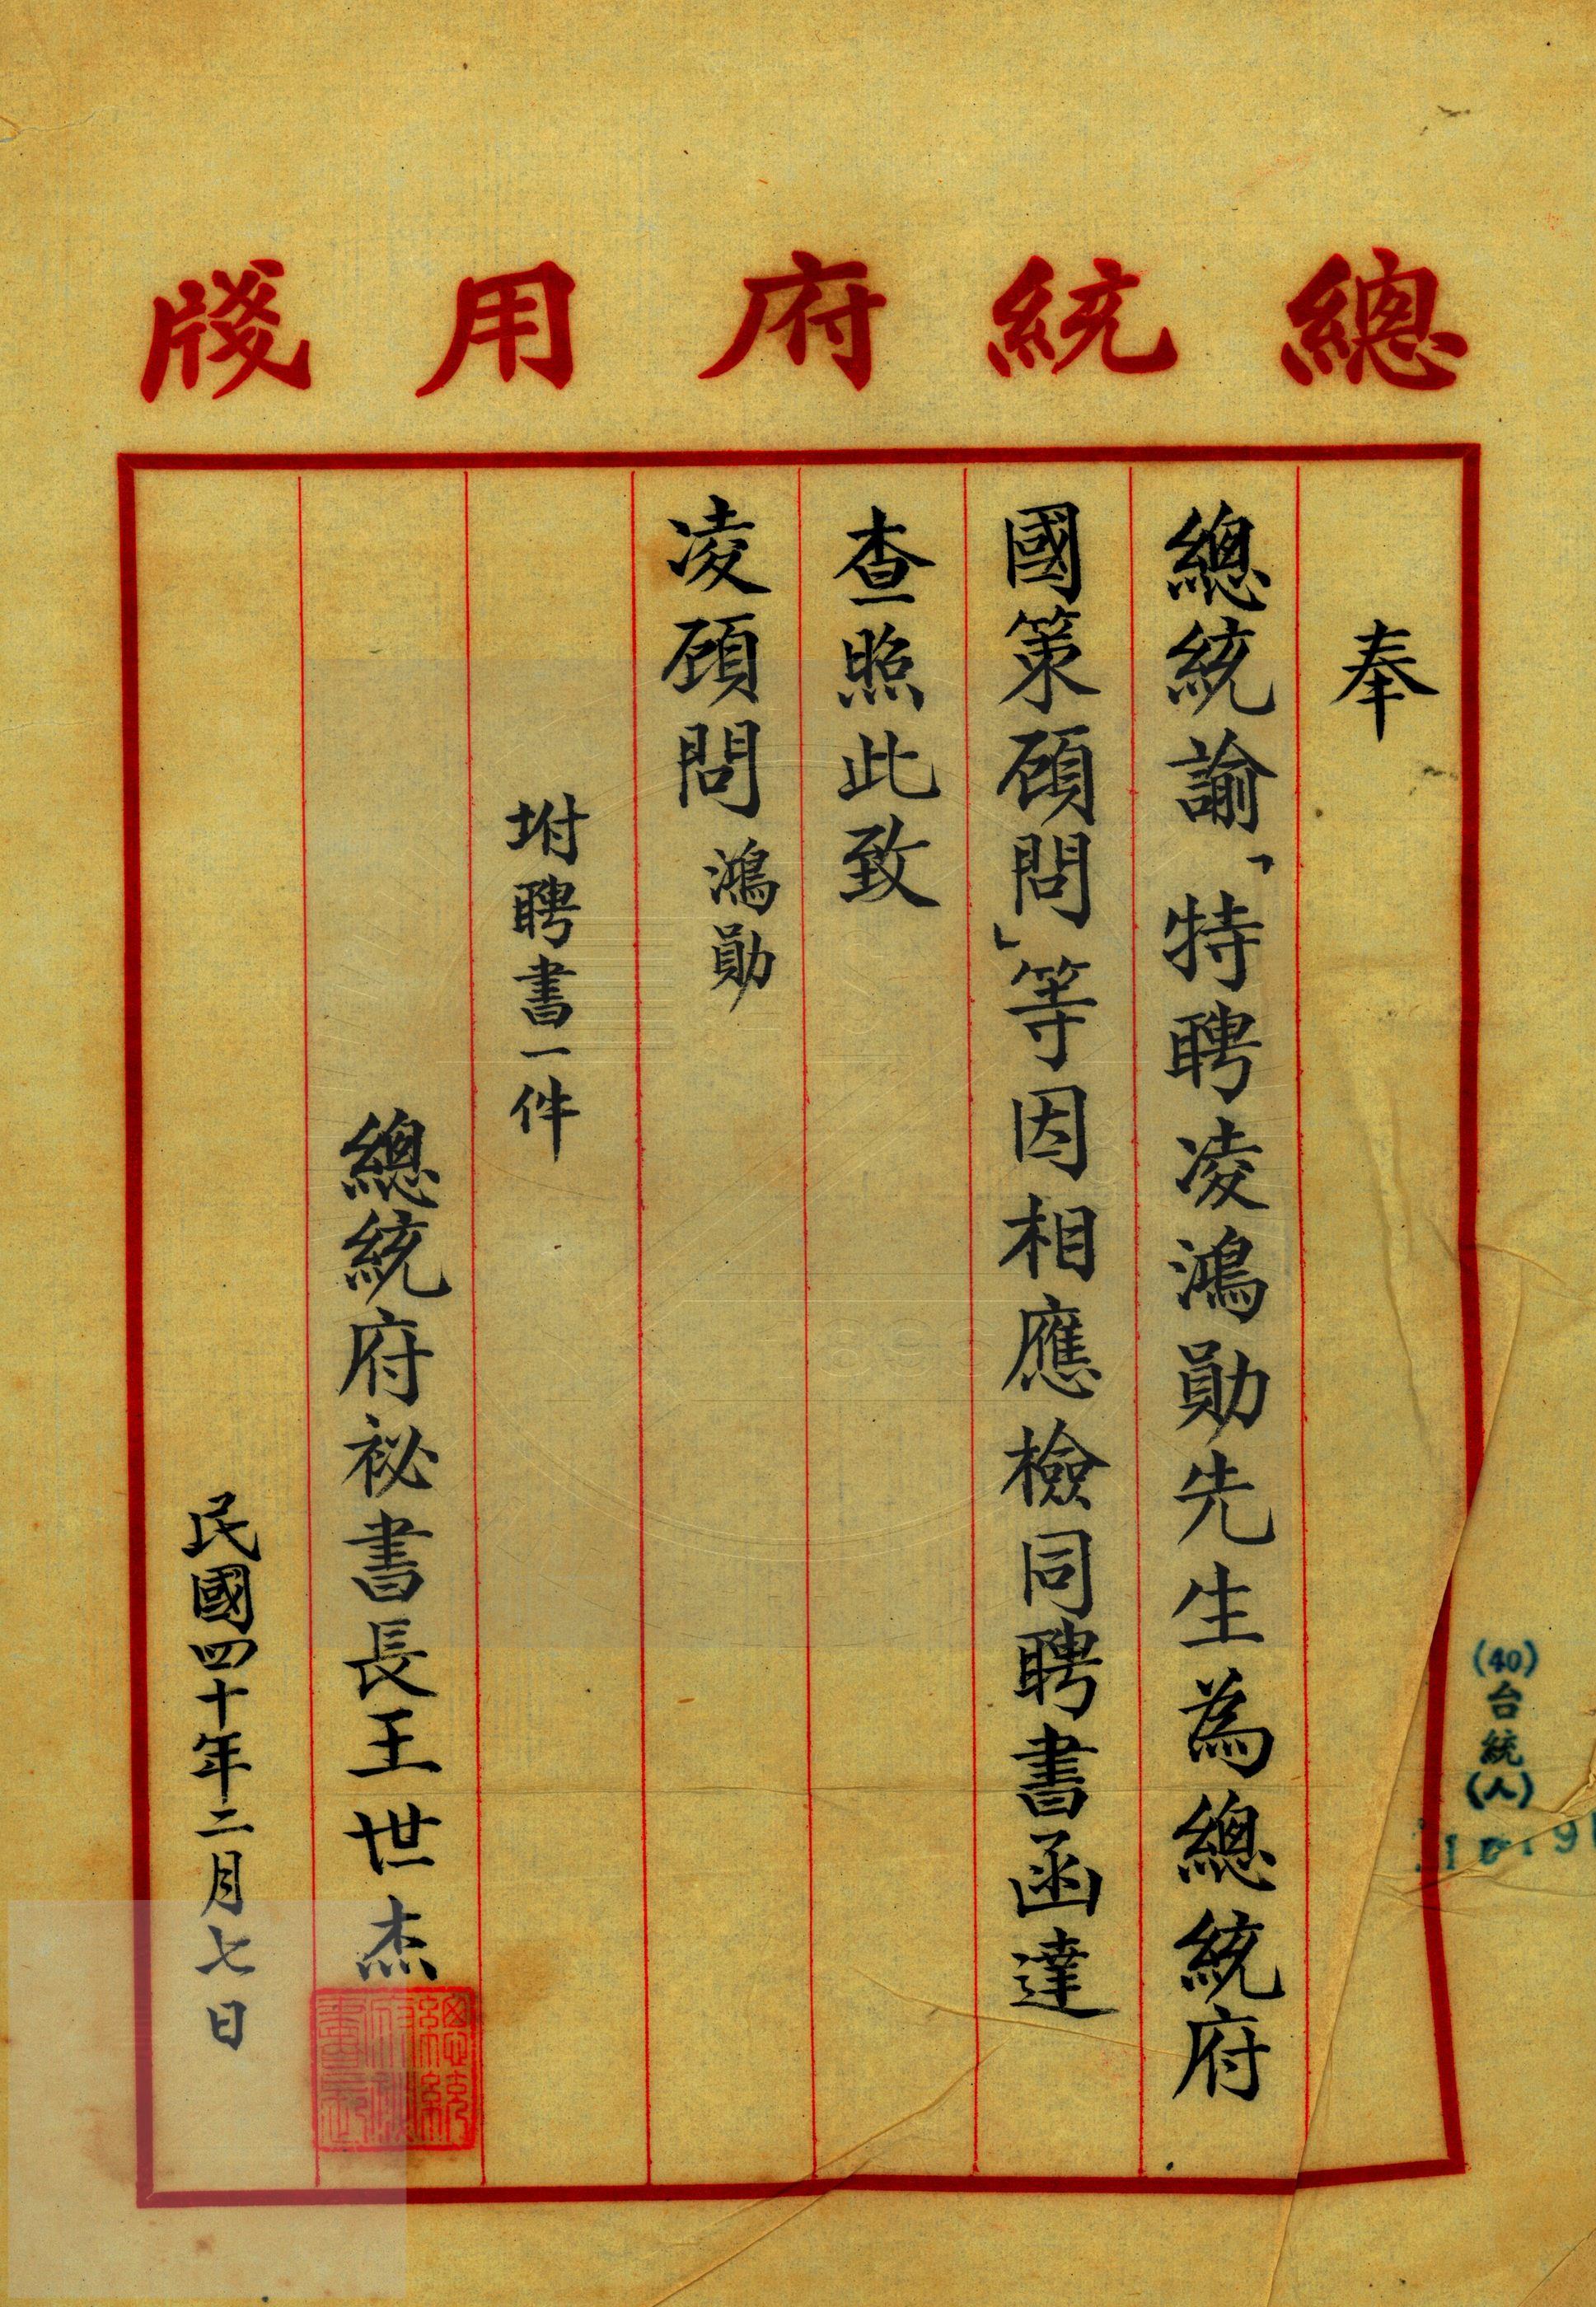 總統府用牋
奉
總統諭「特聘凌鴻勛先生為總統府
國策顧問」等因相應檢同聘書函達
查照此致
凌顧問 鴻勛
坿聘書一件
總統府祕書長王世杰
民國四十年二月七日
(40)台統(人)